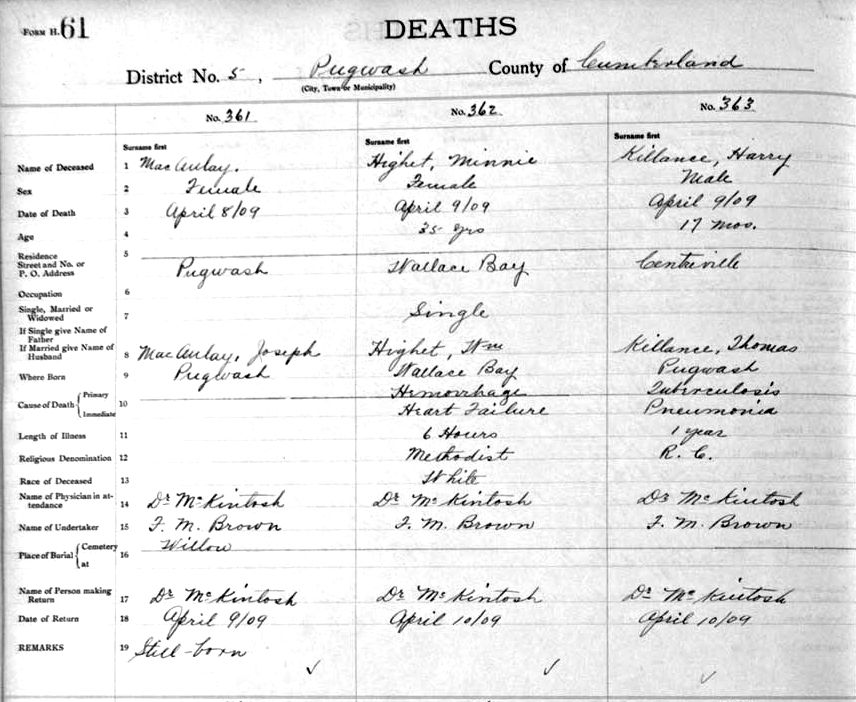 FORM H. 61
DEATHS
District No. 5, Pugwash County of Cumberland
(City, Town or Municipality)
No. 361 No. 362 No. 363
Surname first Surname first Surname first
Name of Deceased 1 MacAulay. Highet, Minnie Killance, Harry
Sex 2 Female Female Male
Date of Death 3 April 8/09 April 9/09 April 9/09
Age 4 35 yrs 17 mos.
Residence
Street and No. or
P. O. Address 5 Pugwash Wallace Bay Centreville
Occupation 6
Single, Married or
Widowed 7 Single
If Single give Name of
Father
If Married give Name of
Husband 8 MacAulay, Joseph Highet, Wm Killance, Thomas
Where Born 9 Pugwash Wallace Bay Pugwash
Cause of Death { Primary Hemorrhage Tuberculosis
Immediate 10 Heart Failure Pneumonia
Length of Illness 11 6 Hours 1 year
Religious Denomination 12 Methodist R. C.
Race of Deceased 13 White
Name of Physician in at-
tendance 14 Dr McKintosh Dr McKintosh Dr McKintosh
Name of Undertaker 15 F. M. Brown F. M. Brown F. M. Brown
Place of Burial { Cemetery
at 16 Willow
Name of Person making
Return 17 Dr McKintosh Dr McKintosh Dr McKintosh
Date of Return 18 April 9/09 April 10/09 April 10/09
REMARKS 19 Still-born